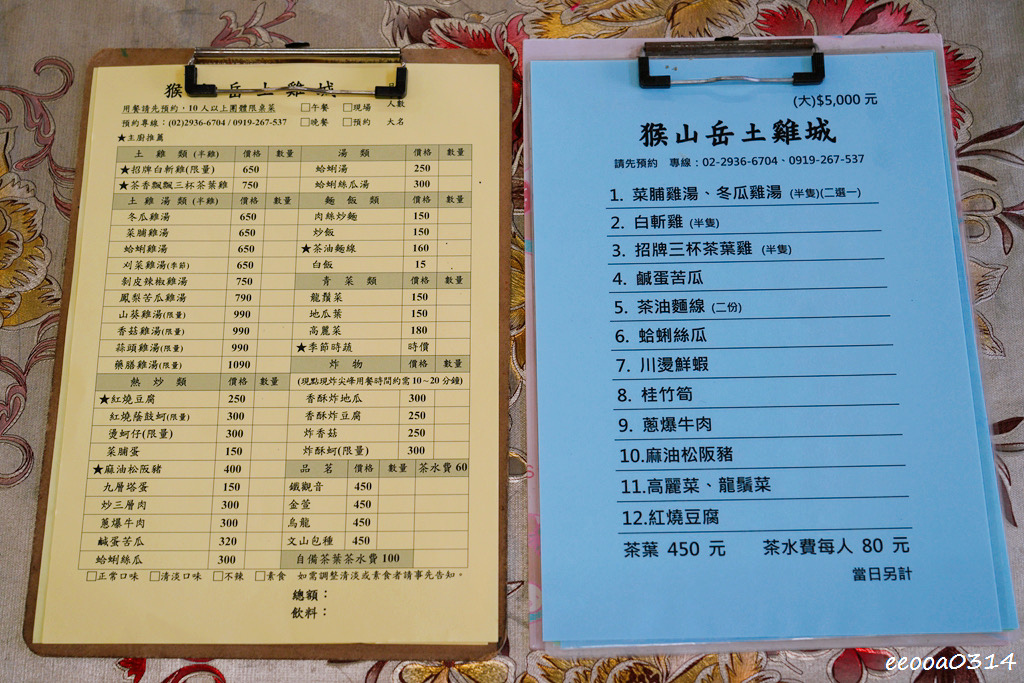 猴山岳土雞城
用餐請先預約,10人以上團體限桌菜 □午餐 □現場 人數
預約專線:(02)2936-6704 / 0919-267-537 □晚餐 □預約 大名
★主廚推薦
土雞類(半雞) 價格 數量 湯類 價格 數量
★招牌白斬雞(限量) 650 蛤蜊湯 250
★茶香飄飄三杯茶葉雞 750 蛤蜊絲瓜湯 300
土雞湯類(半雞) 價格 數量 麵飯類 價格 數量
冬瓜雞湯 650 肉絲炒麵 150
菜脯雞湯 650 炒飯 150
蛤蜊雞湯 650 ★茶油麵線 160
刈菜雞湯(季節) 650 白飯 15
剝皮辣椒雞湯 750 青菜類 價格 數量
鳳梨苦瓜雞湯 790 龍鬚菜 150
山藥雞湯(限量) 990 地瓜葉 150
香菇雞湯(限量) 990 高麗菜 180
蒜頭雞湯(限量) 990 ★季節時蔬 時價
藥膳雞湯(限量) 1090 炸物 價格 數量
熱炒類 價格 數量 (現點現炸尖峰用餐時間約需10~20分鐘)
★紅燒豆腐 250 香酥炸地瓜 300
紅燒蔭豉蚵(限量) 300 香酥炸豆腐 250
燙蚵仔(限量) 300 炸香菇 250
菜脯蛋 150 炸酥蚵(限量) 300
★麻油松阪豬 400 品茗 價格 數量 茶水費 60
九層塔蛋 150 鐵觀音 450
炒三層肉 300 金萱 450
蔥爆牛肉 300 烏龍 450
鹹蛋苦瓜 320 文山包種 450
蛤蜊絲瓜 300 自備茶葉茶水費 100
□正常口味 □清淡口味 □不辣 □素食 如需調整清淡或素食者請事先告知。
總額:
飲料:
(大)$5,000 元
猴山岳土雞城
請先預約 專線:02-2936-6704、0919-267-537
1. 菜脯雞湯、冬瓜雞湯 (半隻)(二選一)
2. 白斬雞 (半隻)
3. 招牌三杯茶葉雞 (半隻)
4. 鹹蛋苦瓜
5. 茶油麵線 (二份)
6. 蛤蜊絲瓜
7. 川燙鮮蝦
8. 桂竹筍
9. 蔥爆牛肉
10.麻油松阪豬
11.高麗菜、龍鬚菜
12.紅燒豆腐
茶葉 450 元 茶水費每人 80 元
當日另計
eeooa0314